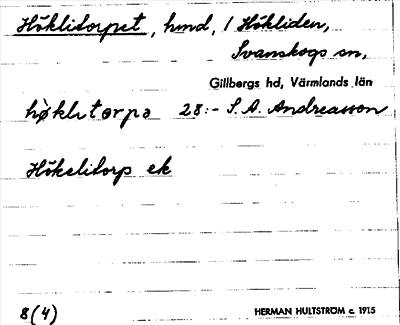 Höklitorpet, hmd, 1 Hökliden,
Svanskogs sn,
Gillbergs hd, Värmlands län
hø̀klɩtorpə 28:- S. A. Andreasson
Hökelitorp ek
8(4)
HERMAN HULTSTRÖM c. 1915